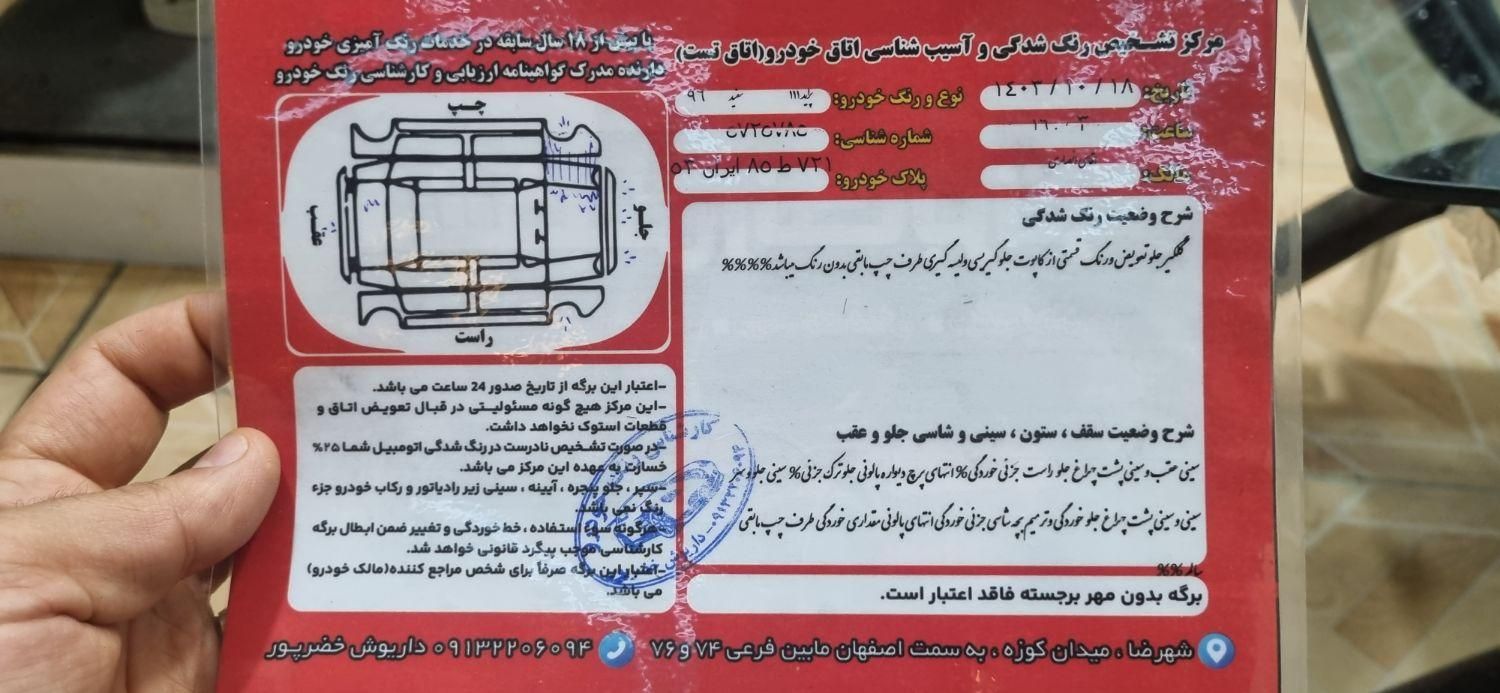 مرکز تشخیص رنگ شدگی و آسیب شناسی اتاق خودرو(اتاق تست)
با بیش از ۱۸ سال سابقه در خدمات رنگ آمیزی خودرو
دارنده مدرک گواهینامه ارزیابی و کارشناسی رنگ خودرو
تاریخ: ۱۴۰۳/۱۰/۱۸
نوع و رنگ خودرو: پراید۱۱۱ سفید ۹۶
ساعت:
شماره شناسی:
مالک:
پلاک خودرو: ۷۲۱ ط ۸۵ ایران ۵۳
چپ
جلو
عقب
راست
شرح وضعیت رنگ شدگی
گلگیر جلو تعویض و رنگ قسمتی از کاپوت جلو گیرسی و لیسه گیری طرف چپ مابقی بدون رنگ میباشد%%%%
شرح وضعیت سقف ، ستون ، سینی و شاسی جلو و عقب
سینی عقب و سینی پشت چراغ جلو راست جزئی خوردگی% انتهای پرچ دیواره پالونی جلو ترک جزئی% سینی جلو و سر
سینی و سینی پشت چراغ جلو خوردگی و ترمیم بچه شاسی جزئی خوردگی انتهای پالونی مقداری خوردگی طرف چپ مابقی
سالم %%
برگه بدون مهر برجسته فاقد اعتبار است.
–اعتبار این برگه از تاریخ صدور 24 ساعت می باشد.
–این مرکز هیچ گونه مسئولیتی در قبال تعویض اتاق و
قطعات استوک نخواهد داشت.
–در صورت تشخیص نادرست در رنگ شدگی اتومبیل شما ۲۵%
خسارت به عهده این مرکز می باشد.
–سپر ، جلو پنجره ، آیینه ، سینی زیر رادیاتور و رکاب خودرو جزء
رنگ نمی باشد.
–هرگونه سوء استفاده ، خط خوردگی و تغییر ضمن ابطال برگه
کارشناسی موجب پیگرد قانونی خواهد شد.
–اعتبار این برگه صرفاً برای شخص مراجع کننده(مالک خودرو)
می باشد.
شهرضا ، میدان کوزه ، به سمت اصفهان مابین فرعی ۷۴ و ۷۶
۰۹۱۳۲۲۰۶۰۹۴ داریوش خضرپور